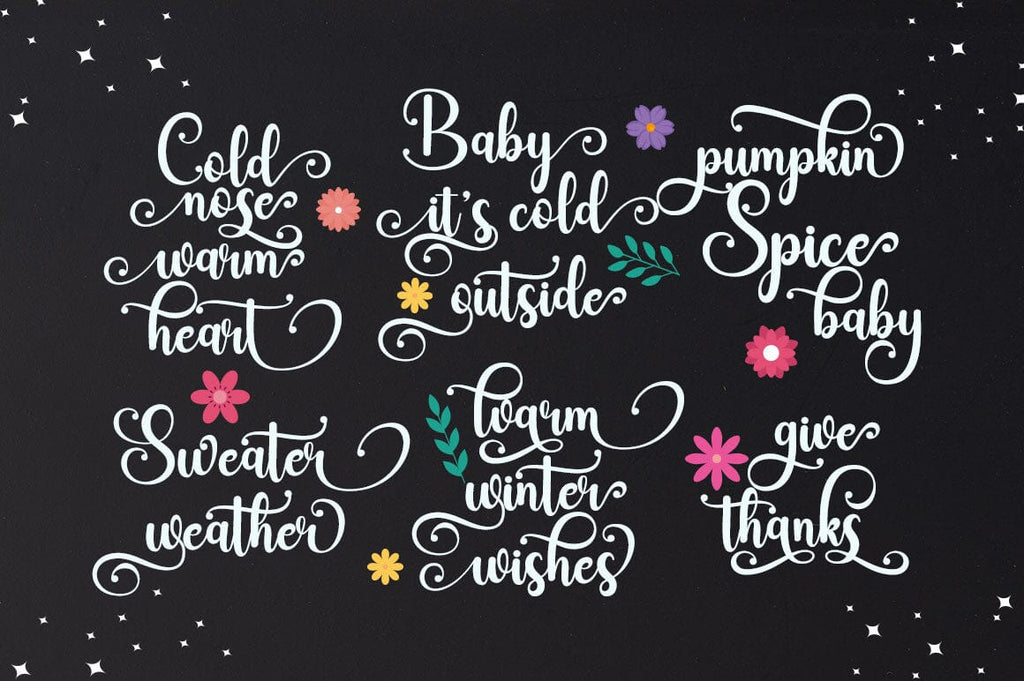 Cold
nose
warm
heart
Baby
it's cold
outside
pumpkin
Spice
baby
Sweater
weather
Warm
winter
wishes
give
thanks